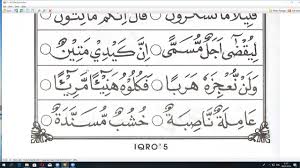 لِيُقْضٰى اَجَلٌ مُّسَمًّى ○ اِنَّ كَيْدِيْ مَتِيْنٌ ○
وَلَنْ نُّعْجِزَهُ هَرَبًا ○ فَكُلُوْهُ هَنِيْئًا مَّرِيْئًا ○
عَامِلَةٌ نَّاصِبَةٌ ○ خُشُبٌ مُّسَنَّدَةٌ ○
IQRO' 5